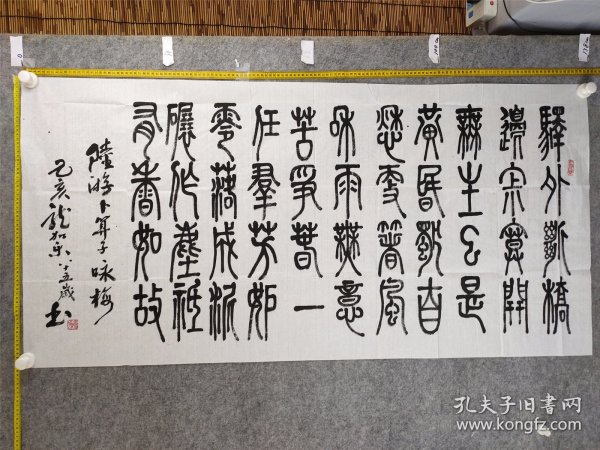 驛外斷橋
邊宗寞開
無主已是
黃昏獨自
愁更箸風
和雨無意
苦爭春一
任羣芳妒
零落成泥
碾作塵祗
有香如故
陸游卜算子咏梅
己亥龍八十五歲書
孔夫子旧书网
www.kongfz.com